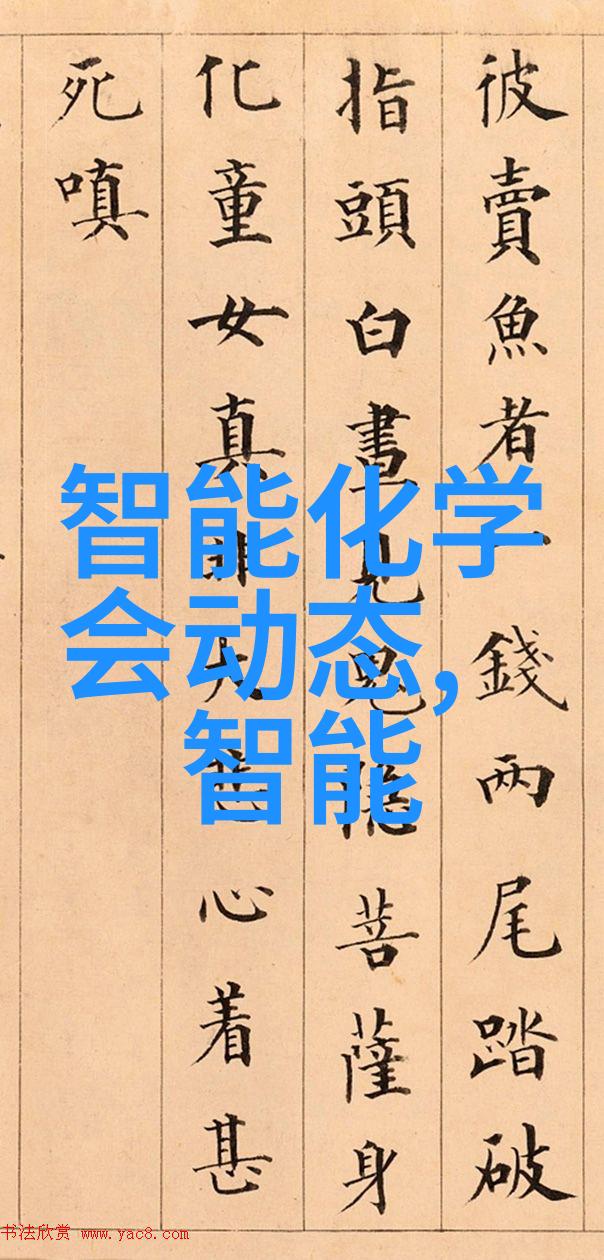 彼賣魚者一錢兩尾踏破
指頭白晝見鬼隱菩薩身
化童女真非大心着甚
死嗔
智能化学
会动态,
智能
书法欣赏 www.yac8.com